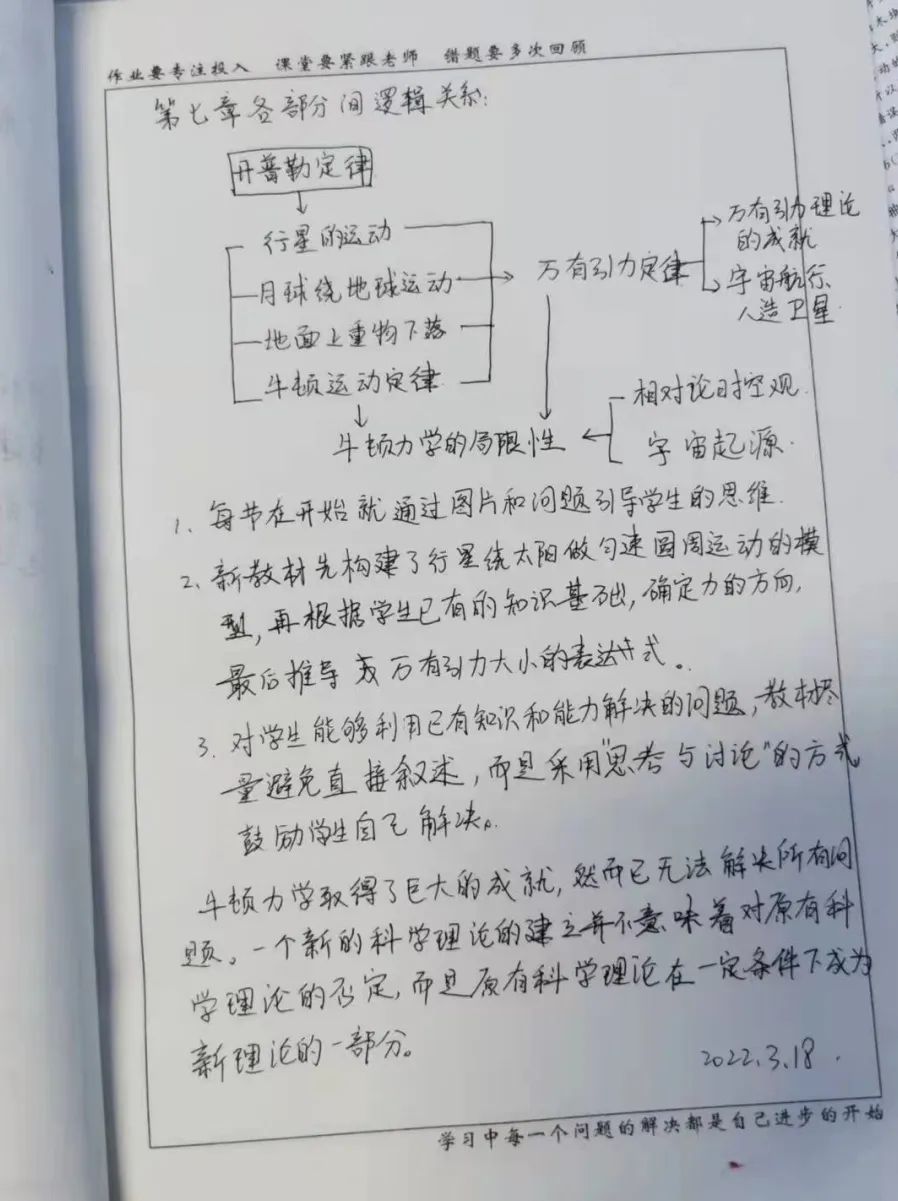 作业要专注投入 课堂要紧跟老师 错题要多次回顾
第七章各部分间逻辑关系:
开普勒定律
行星的运动
月球绕地球运动
地面上重物下落
牛顿运动定律
万有引力定律
万有引力理论
的成就
宇宙航行
人造卫星
牛顿力学的局限性
相对论时空观
宇宙起源
1、每节在开始就通过图片和问题引导学生的思维.
2、新教材先构建了行星绕太阳做匀速圆周运动的模
型,再根据学生已有的知识基础,确定力的方向,
最后推导成万有引力大小的表达式。
3、对学生能够利用已有知识和能力解决的问题,教材尽
量避免直接叙述,而是采用"思考与讨论"的方式
鼓励学生自己解决。
牛顿力学取得了巨大的成就,然而已无法解决所有问
题。一个新的科学理论的建立并不意味着对原有科
学理论的否定,而是原有科学理论在一定条件下成为
新理论的一部分。
2022.3.18.
学习中每一个问题的解决都是自己进步的开始